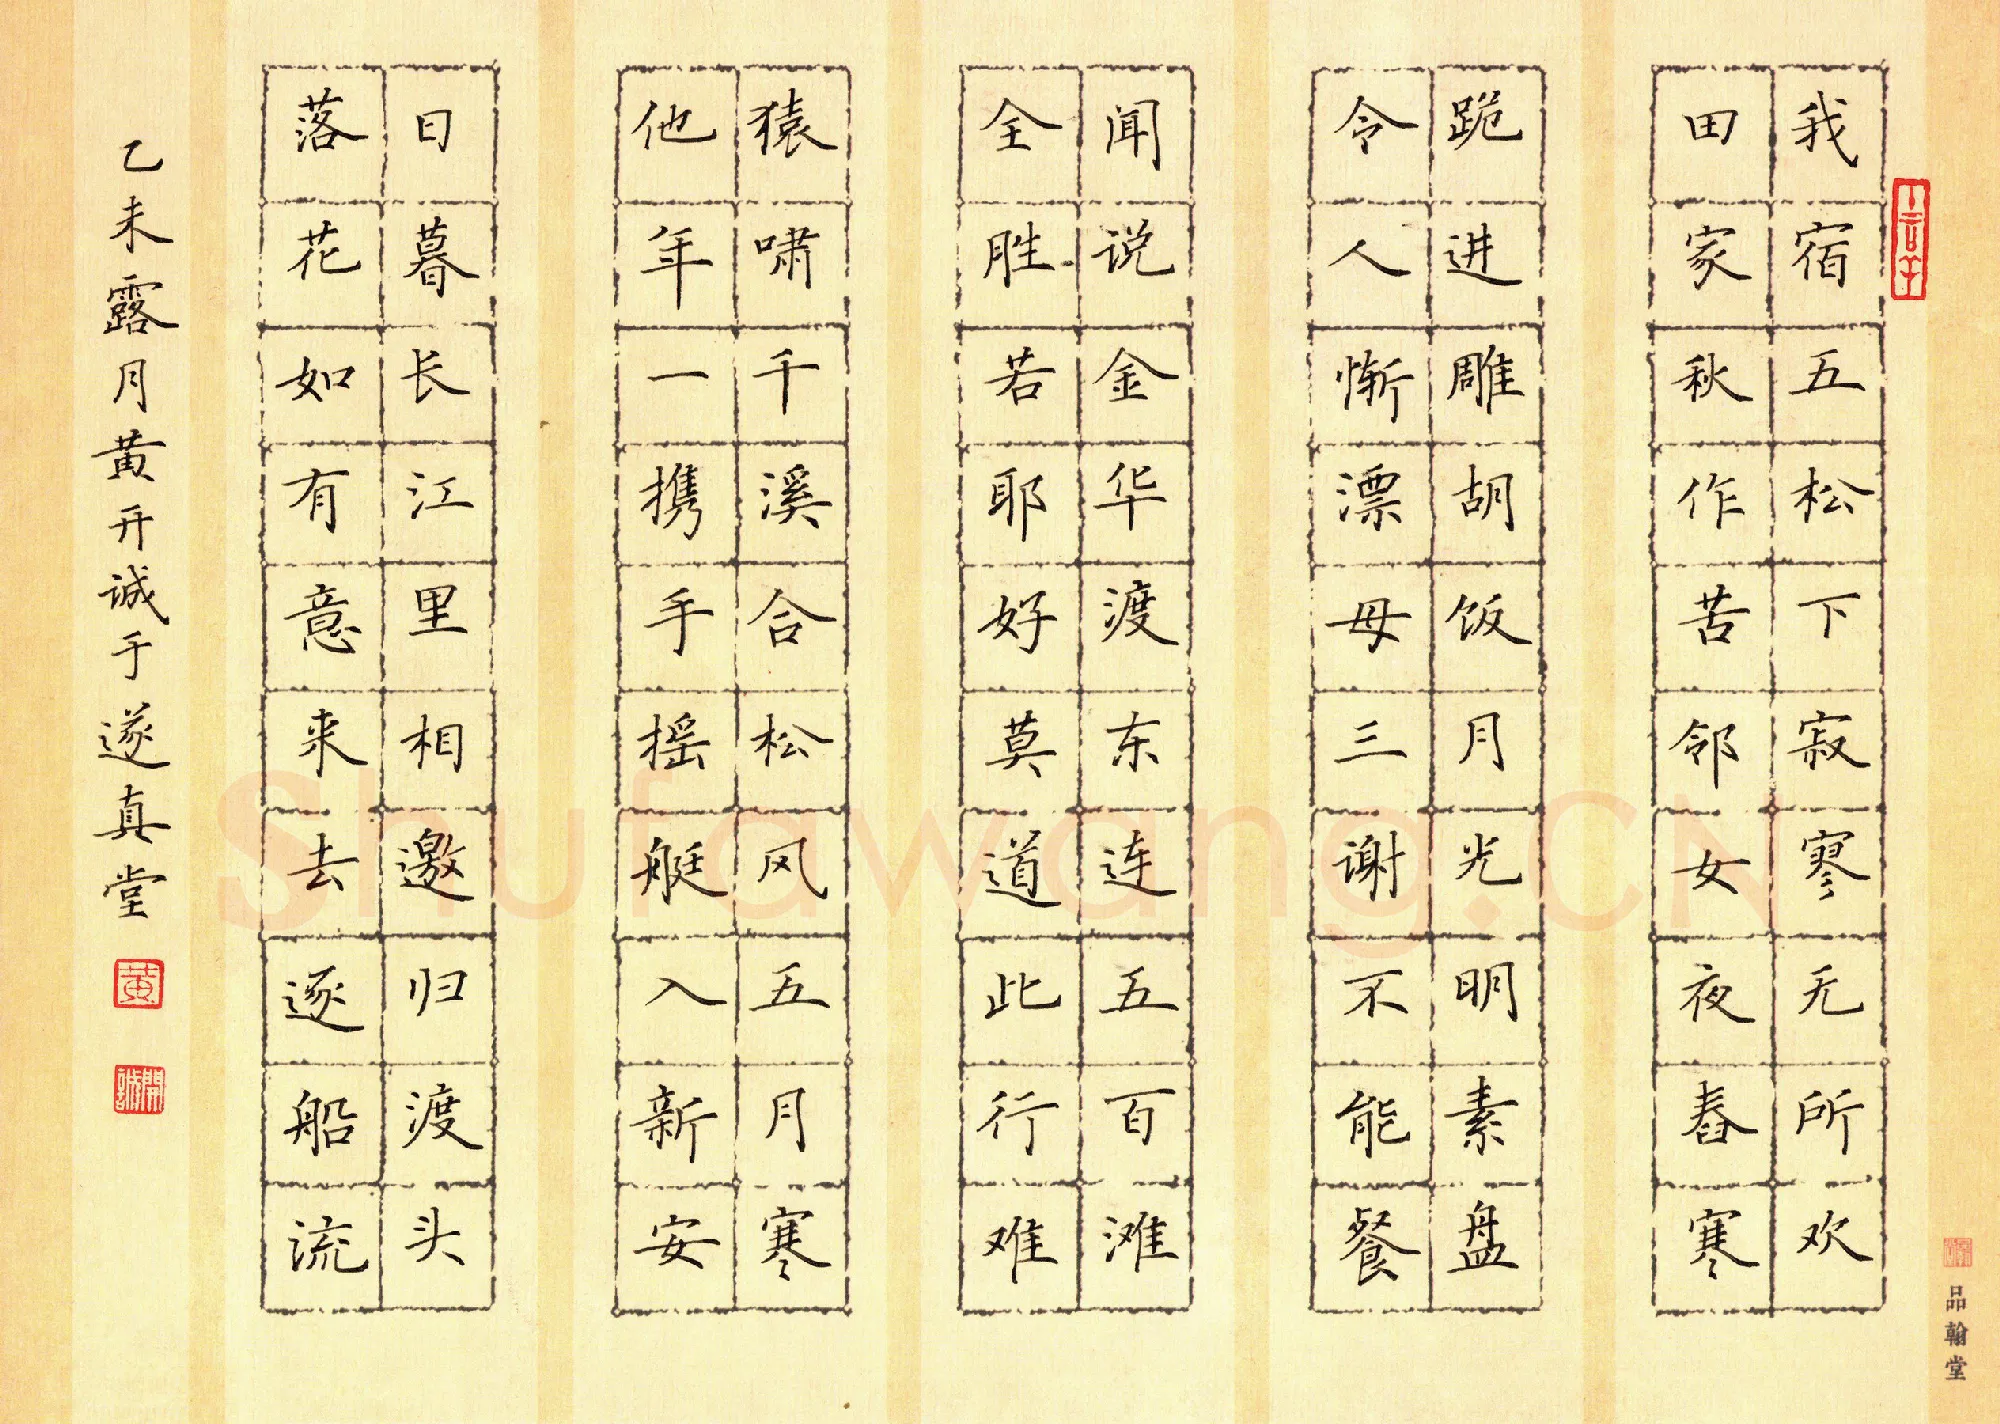 我宿五松下寂寥无所欢
田家秋作苦邻女夜舂寒
跪进雕胡饭月光明素盘
令人惭漂母三谢不能餐
闻说金华渡东连五百滩
全胜若耶好莫道此行难
猿啸千溪合松风五月寒
他年一携手摇艇入新安
日暮长江里相邀归渡头
落花如有意来去逐船流
乙未露月黄开诚于遂真堂
黄
開誠
品翰堂
Shufawang.CN